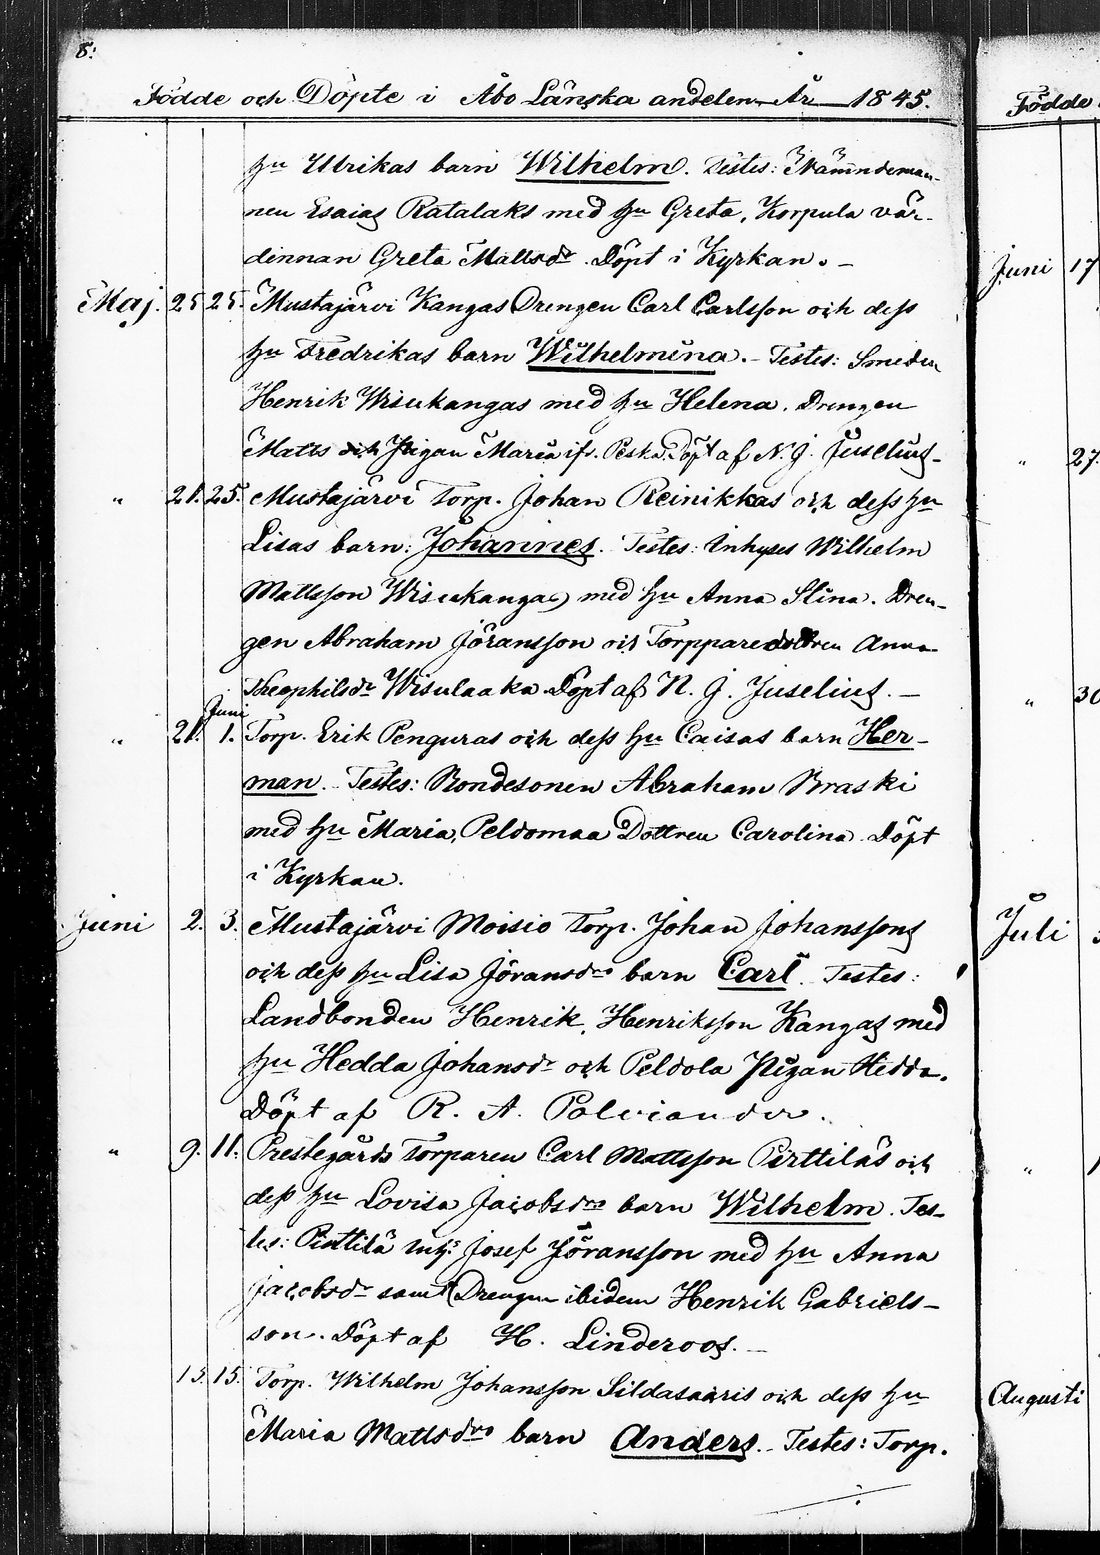 8.
Födde och Döpte i Åbo Länska andelen År 1845.
hu Ulrikas barn Wilhelm. Testes: Nämndeman-
nen Esaias Ratalaks med hu Greta, Korpula vär-
dinnan Greta Mattsdr. Döpt i Kyrkan. -
Maj. 25 25. Mustajärvi Kangas Drengen Carl Carlsson och dess
hu Fredrikas barn Wilhelmina. - Testes: Smeden
Henrik Wisukangas med hu Helena. Drengen
Matts och Pigan Maria ifr. Pesk. Döpt af N. J. Juselius -
" 21. 25. Mustajärvi Torp. Johan Reinikkas och dess hu
Lisas barn: Johannes. Testes: Inhyses Wilhelm
Mattsson Wisukangas med hu Anna Stina. Dren-
gen Abraham Jöransson och Torpparedottren Anna
Theophilsdr Wisulaaka Döpt af N. J. Juselius. -
Juni
" 21. 1. Torp. Erik Penguras och dess hu Caisas barn Her-
man. - Testes: Bondesonen Abraham Braski
med hu Maria, Peldomaa Dottren Carolina Döpt
i Kyrkan.
Juni 2. 3. Mustajärvi Moisio Torp. Johan Johanssons
och dess hu Lisa Jöransdrs barn Carl. Testes:
Landbonden Henrik Henriksson Kangas med
hu Hedda Johansdr och Peldola Pigan Hedda.
Döpt af R. A. Polviander.
" 9. 11. Prestegårds Torparen Carl Mattsson Pirttiläs och
dess hu Lovisa Jacobsdrs barn Wilhelm. Tes-
tes: Pirttilä Inhs: Josef Jöransson med hu Anna
Jacobsdr samt Drengen ibidem Henrik Gabriels-
son. Döpt af H. Linderoos. -
15. 15. Torp. Wilhelm Johansson Sildasaaris och dess hu
Maria Mattsdrs barn Anders. - Testes: Torp.
Födde
Juni 17
" 27.
" 30
Juli
"
Augusti